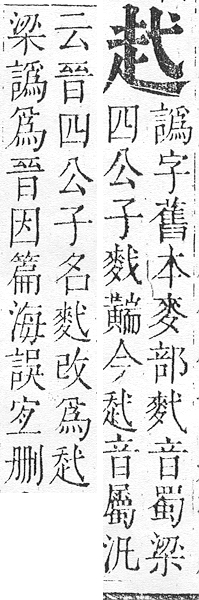 譌字舊本麥部䴬音蜀梁
四公子䴬䵎今音屬汎
云晉四公子名䴬改爲
梁譌爲晉因篇海誤宐刪